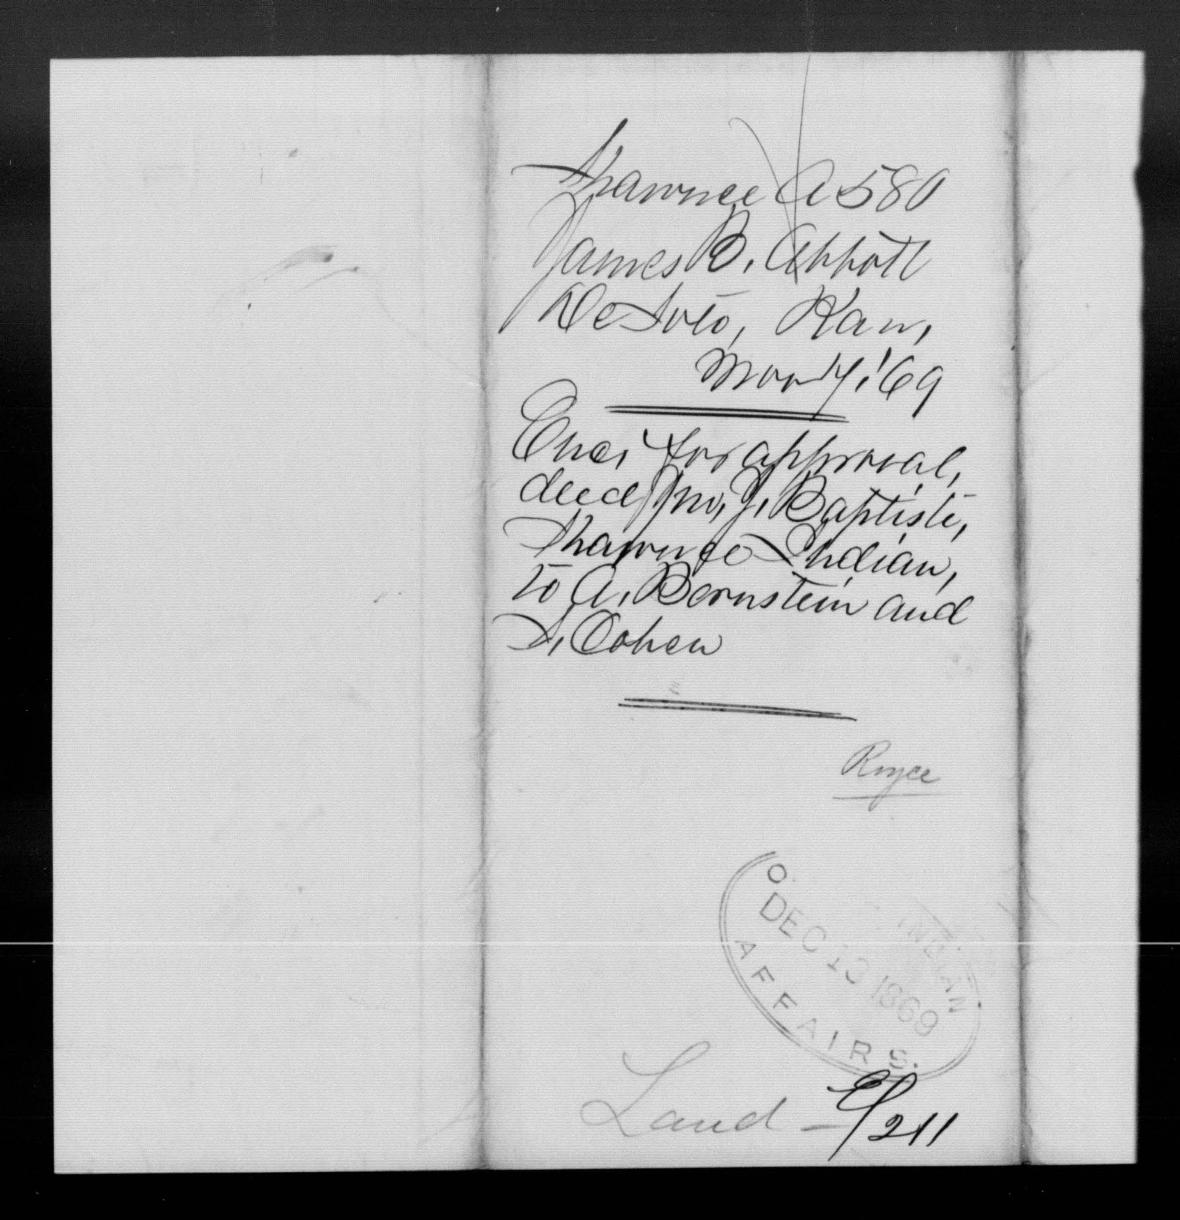 Shawnee A 580
James B. Abbott
De Soto, Kan,
'69
Enc, for approval,
deed Jno, J. Baptiste,
Shawnee Indian,
to A. Bernstein and
S. Cohen
Royce
O. INDIAN
DEC 13 1869
AFFAIRS.
Land - 211